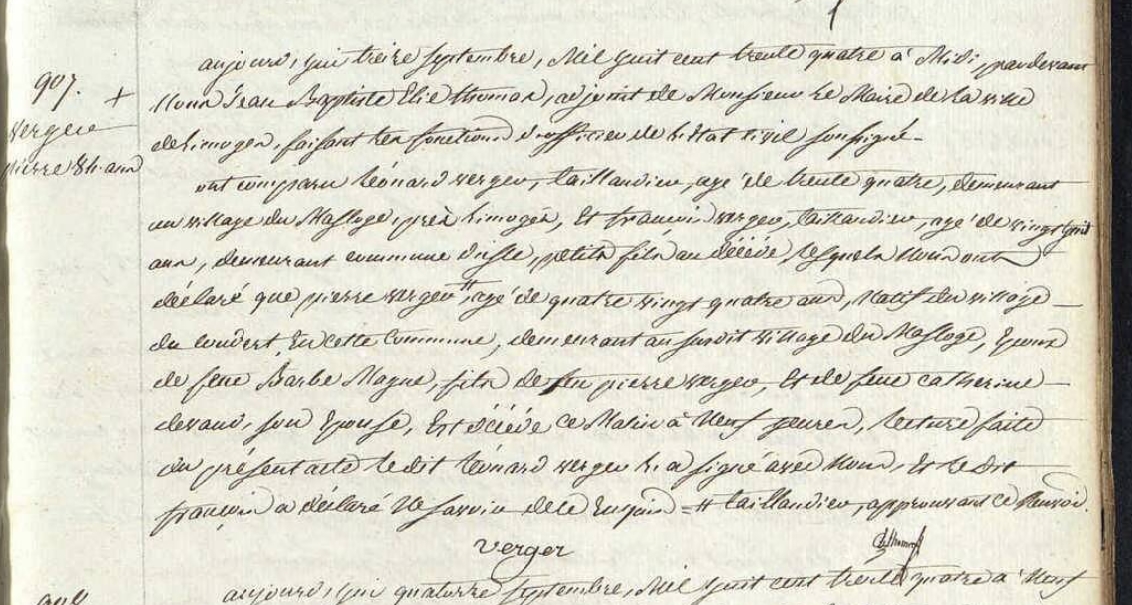 907. +
verger
pierre 84. ans
aujourd'hui treize septembre, Mil huit cent trente quatre à Midi, pardevant
Nous Jean Baptiste Elie thomas, adjoint de Monsieur Le Maire de La ville
de Limoges, faisant Les fonctions d'officier de L'état Civil soussigné -
ont comparu Léonard verger, taillandier, agé de trente quatre, demeurant
au village du Masloge, près Limoges, Et françois verger, taillandier, agé de vingt huit
ans, demeurant commune d'isle, petits fils au décédé, Lesquels Nous ont
déclaré que pierre verger # agé de quatre vingt quatre ans, Natif du village
du En cette Commune, demeurant au susdit village du Masloge, Epoux
de feue Barbe Magne, fils de feu pierre verger, Et de feue catherine
devaud, son Epouse, Est décédé ce Matin à Neuf heures, Lecture faite
du présent acte Le dit Léonard verger L'a signé avec Nous, Et Le dit
françois a déclaré Ne savoir de ce Enquis = # taillandier, approuvant ce Renvoi.
verger
aujourd'hui quatorze septembre, Mil huit cent trente quatre à Neuf
908